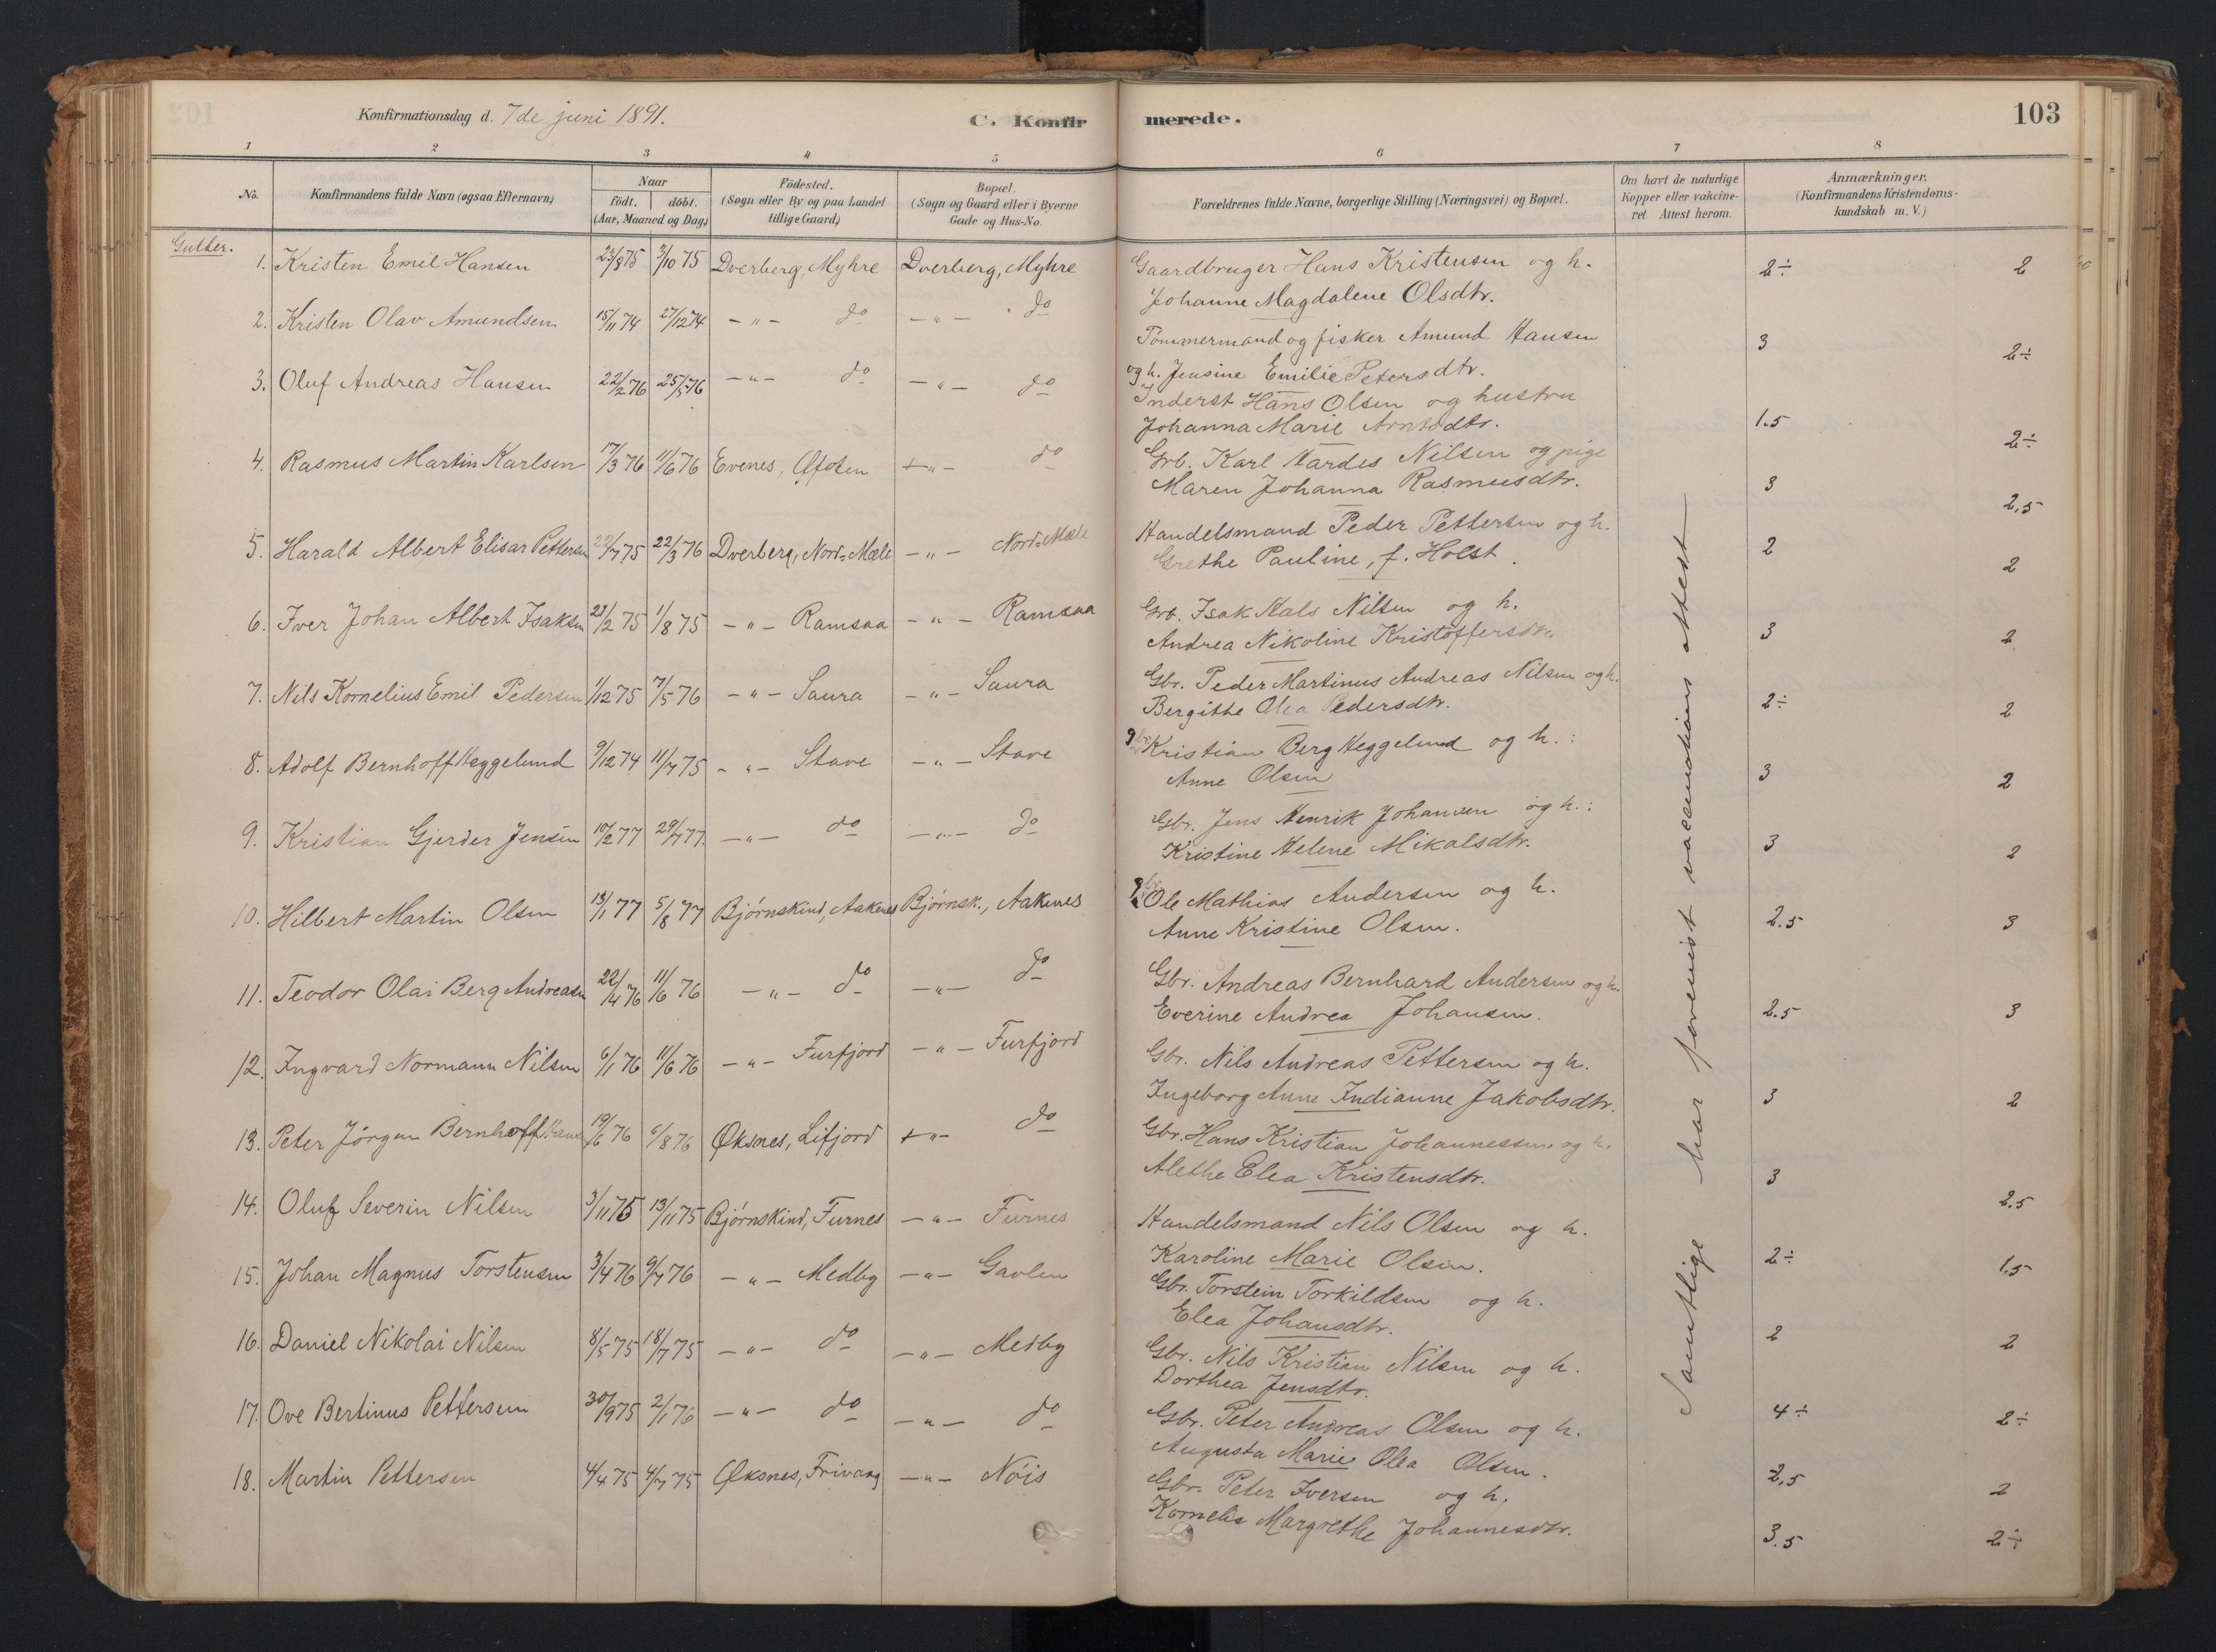 Konfirmationsdag d. 7de juni 1891.
C. Konfirmerede.
103
1 2 3 4 5 6 7 8
No.
Konfirmandens fulde Navn (ogsaa Efternavn)
Naar
født. døbt.
(Aar, Maaned og Dag)
Fødested.
(Sogn eller By og paa Landet
tillige Gaard)
Bopæl.
(Sogn og Gaard eller i Byerne
Gade og Hus-No.
Forældrenes fulde Navne, borgerlige Stilling (Næringsvei) og Bopæl.
Om havt de naturlige
Kopper eller vakcine-
ret Attest herom.
Anmærkninger.
(Konfirmandens Kristendoms-
kundskab m. V.)
Gutter.
1. Kristen Emil Hansen 23/8 75 3/10 75 Dverberg, Myhre Dverberg, Myhre Gaardbruger Hans Kristensen og h. 2÷ 2
Johanne Magdalene Olsdtr.
2. Kristen Olav Amundsen 15/11 74 27/12 74 -"- do -"- do Tømmermand og fisker Amund Hansen 3 2÷
og h. Jensine Emilie Petersdtr.
3. Oluf Andreas Hansen 22/2 76 25/5 76 -"- do -"- do Inderst Hans Olsen og hustru
Johanna Marie Arntsdtr. 1.5 2÷
4. Rasmus Martin Karlsen 17/3 76 11/6 76 Evenes, Ofoten +"- do Grb. Karl Hardes Nilsen og pige
Maren Johanna Rasmusdtr. 3 2,5
5. Harald Albert Elisar Pettersen 22/7 75 22/3 76 Dverberg, Nord-Mæle -"- Nord-Mæle Handelsmand Peder Pettersen og h.
Grethe Pauline, f. Holst. 2 2
6. Iver Johan Albert Isaksen 23/2 75 1/8 75 -"- Ramsaa -"- Ramsaa Grb. Isak Hals Nilsen og h.
Andrea Nikoline Kristoffersdtr. 3 2
7. Nils Kornelius Emil Pedersen 1/12 75 7/5 76 -"- Saura -"- Saura Gbr. Peder Martinus Andreas Nilsen og h.
Bergithe Olea Pedersdtr. 2÷ 2
8. Adolf Bernhoff Heggelund 9/12 74 11/7 75 -"- Stave -"- Stave gbr. Kristian Berg Heggelund og h.:
Anne Olsen 3 2
9. Kristian Gjerder Jensen 10/2 77 29/7 77. -"- do -"- do Gbr. Jens Henrik Johansen og h.:
Kristine Helene Mikalsdtr. 3 2
10. Hilbert Martin Olsen 13/1 77 5/8 77 Bjørnskind, Aakenes Bjørnsk., Aakenes gbr. Ole Mathias Andersen og h.
Anne Kristine Olsen. 2.5 3
11. Teodor Olai Berg Andreasen 22/4 76 11/6 76 -"- do -"- do Gbr. Andreas Bernhard Andersen og h.
Everine Andrea Johansen. 2.5 3
12. Ingvard Normann Nilsen 6/1 76 11/6 76 -"- Furfjord -"- Furfjord Gbr. Nils Andreas Pettersen og h.
Ingeborg Anne Indianne Jakobsdtr. 3 2
13. Peter Jörgen Bernhoff 19/6 76 6/8 76 Øksnes, Lifjord +"- do Gbr. Hans Kristian Johannessen og h.
Alethe Elea Kristensdtr. 3 2.5
14. Oluf Severin Nilsen 3/11 75 13/11 75 Bjørnskind, Furnes -"- Furnes Handelsmand Nils Olsen og h.
Karoline Marie Olsen. 2÷ 1.5
15. Johan Magnus Torstensen 3/4 76 9/7 76 -"- Medby -"- Gavlen Gbr. Torstein Torkildsen og h.
Elea Johansdtr. 2 2
16. Daniel Nikolai Nilsen 8/5 75 18/7 75 -"- do -"- Medby Gbr. Nils Kristian Nilsen og h.
Dorthea Jensdtr. 4÷ 2÷
17. Ove Bertinus Pettersen 30/9 75 2/1 76 -"- do -"- do Gbr. Peter Andreas Olsen og h.
Augusta Marie Olea Olsen. 2,5 2
18. Martin Pettersen 4/4 75 4/7 75 Øksnes, Frivaag -"- Nöis Gbr. Peter Iversen og h.
Kornelia Margrethe Johannesdtr. 3.5 2÷
Samtlige har forevist vaccinations attest